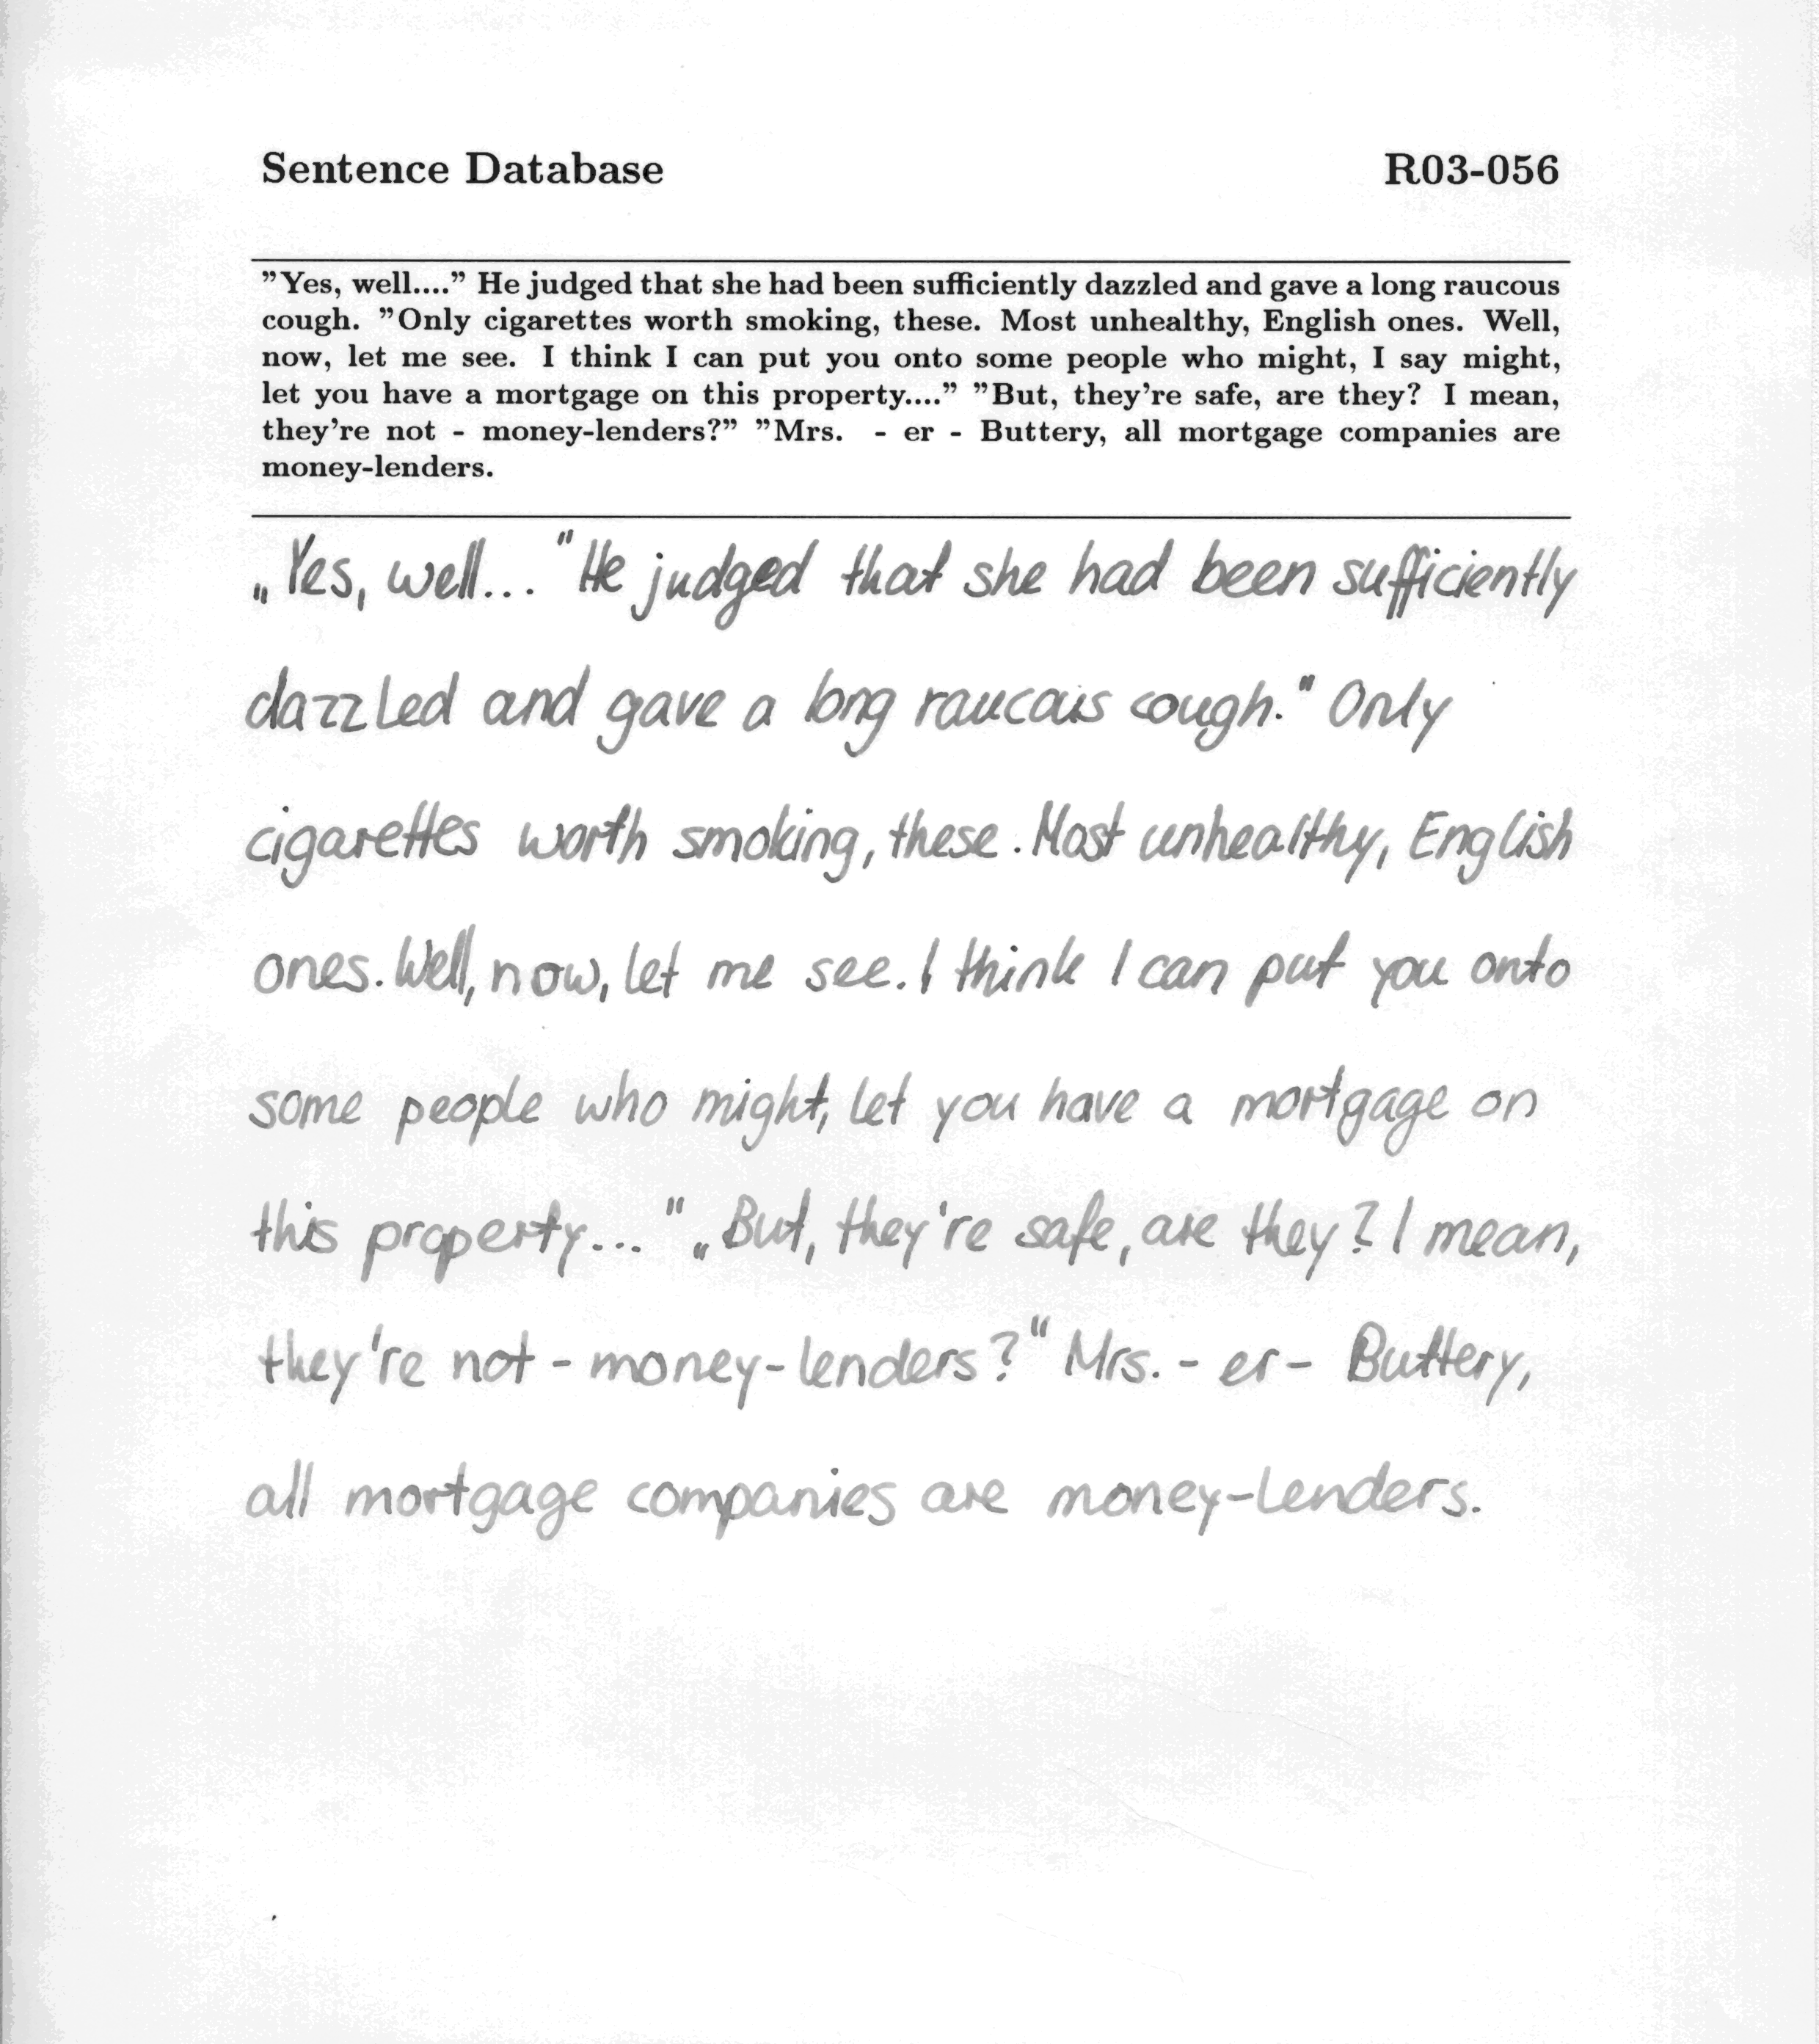 Sentence Database R03-056
”Yes, well....” He judged that she had been sufficiently dazzled and gave a long raucous
cough. ”Only cigarettes worth smoking, these. Most unhealthy, English ones. Well,
now, let me see. I think I can put you onto some people who might, I say might,
let you have a mortgage on this property....” ”But, they’re safe, are they? I mean,
they’re not - money-lenders?” ”Mrs. - er - Buttery, all mortgage companies are
money-lenders.
„Yes, well... "He judged that she had been sufficiently
dazzled and gave a long raucous cough." Only
cigarettes worth smoking, these. Most unhealthy, English
ones. Well, now, let me see. I think I can put you onto
some people who might, let you have a mortgage on
this property... " „But, they're safe, are they? I mean,
they're not - money-lenders?" Mrs. - er - Buttery,
all mortgage companies are money-lenders.